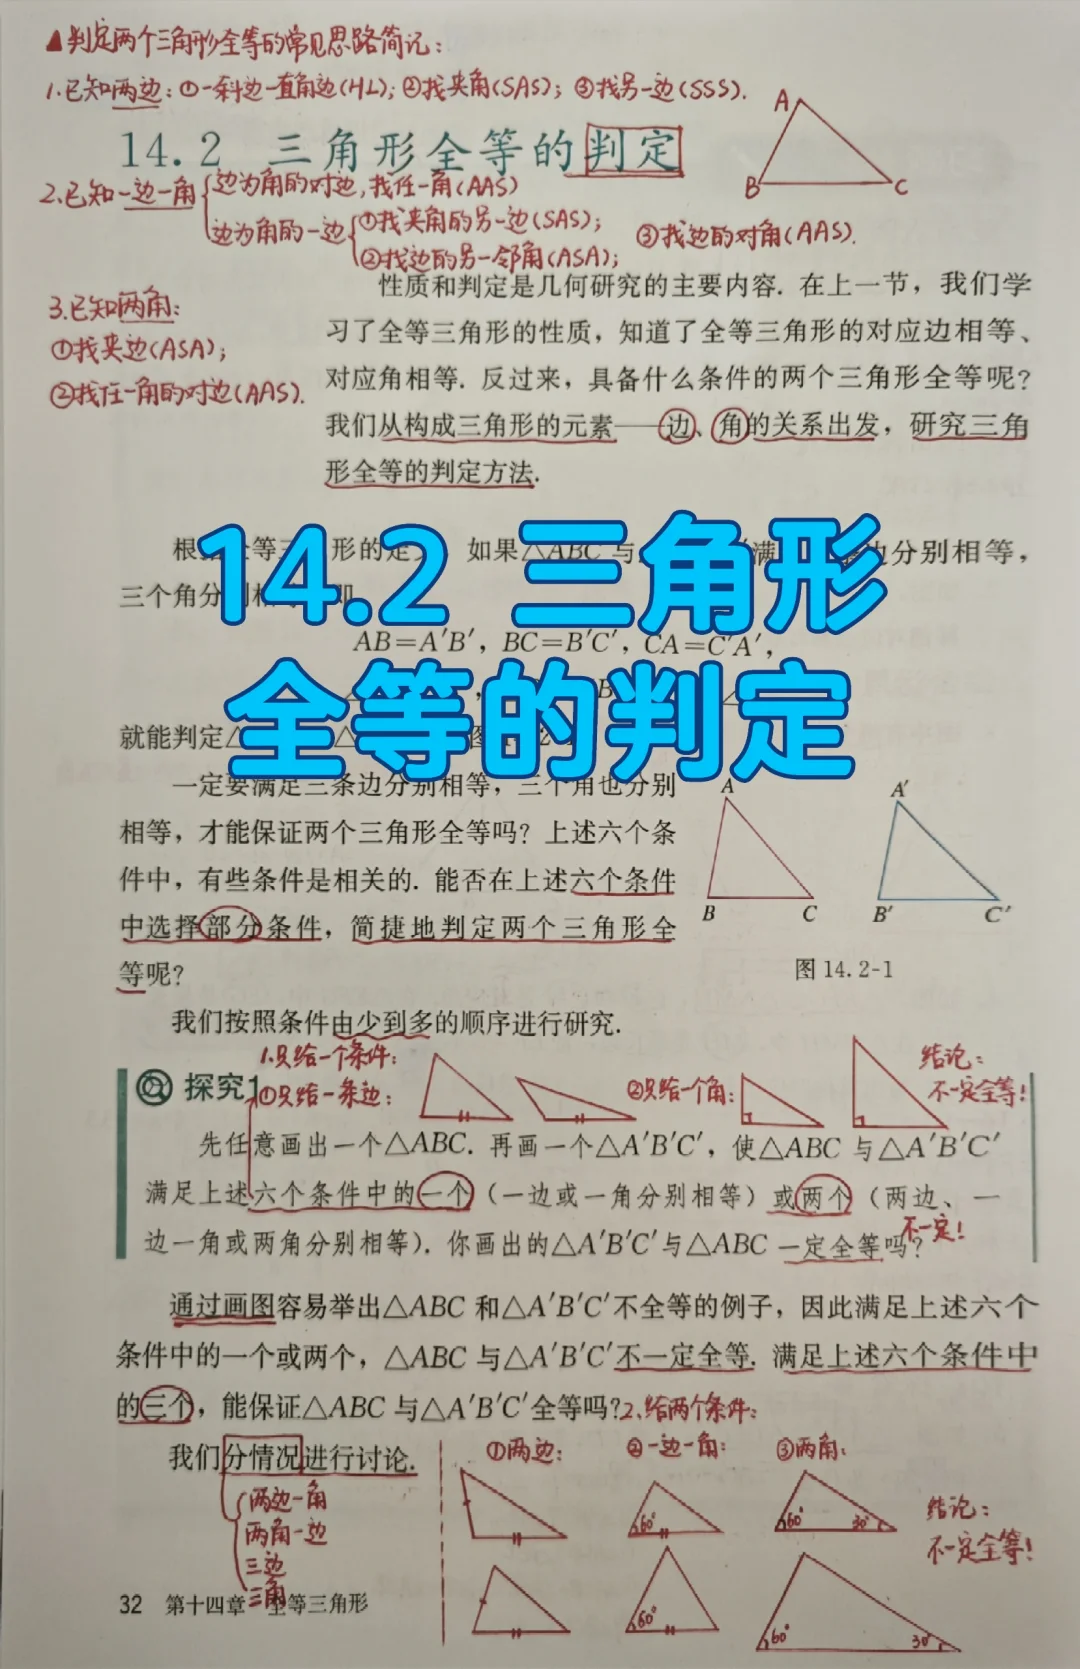 ▲判定两个三角形全等的常见思路简记:
1.已知两边:①一斜边一直角边(HL);②找夹角(SAS);③找另一边(SSS).
A
B
C
14.2 三角形全等的判定
2.已知一边一角
边为角的对边,找任一角(AAS)
边为角的一边
①找夹角的另一边(SAS);
②找边的另一邻角(ASA);
③找边的对角(AAS).
3.已知两角:
①找夹边(ASA);
②找任一角的对边(AAS).
性质和判定是几何研究的主要内容. 在上一节，我们学
习了全等三角形的性质，知道了全等三角形的对应边相等、
对应角相等. 反过来，具备什么条件的两个三角形全等呢?
我们从构成三角形的元素——边、角的关系出发，研究三角
形全等的判定方法.
14.2 三角形
全等的判定
根 全等三 形的定 如果△ABC 与 满 边分别相等，
三个角分别相 即
AB=A′B′，BC=B′C′，CA=C′A′，
就能判定△
一定要满足三条边分别相等，三个角也分别
相等，才能保证两个三角形全等吗? 上述六个条
件中，有些条件是相关的. 能否在上述六个条件
中选择部分条件，简捷地判定两个三角形全
等呢?
A
B
C
A′
B′
C′
图 14.2-1
我们按照条件由少到多的顺序进行研究.
1.只给一个条件:
探究1
①只给一条边:
②只给一个角:
结论:
不一定全等!
先任意画出一个△ABC. 再画一个△A′B′C′，使△ABC 与△A′B′C′
满足上述六个条件中的一个（一边或一角分别相等）或两个（两边、一
边一角或两角分别相等）. 你画出的△A′B′C′与△ABC 一定全等吗?
不一定!
通过画图容易举出△ABC 和△A′B′C′不全等的例子，因此满足上述六个
条件中的一个或两个，△ABC 与△A′B′C′不一定全等. 满足上述六个条件中
的三个，能保证△ABC 与△A′B′C′全等吗?
2.给两个条件:
我们分情况进行讨论.
两边一角
两角一边
三边
三角
①两边:
②一边一角:
③两角:
60°
60°
30°
60°
60°
30°
结论:
不一定全等!
32 第十四章 全等三角形